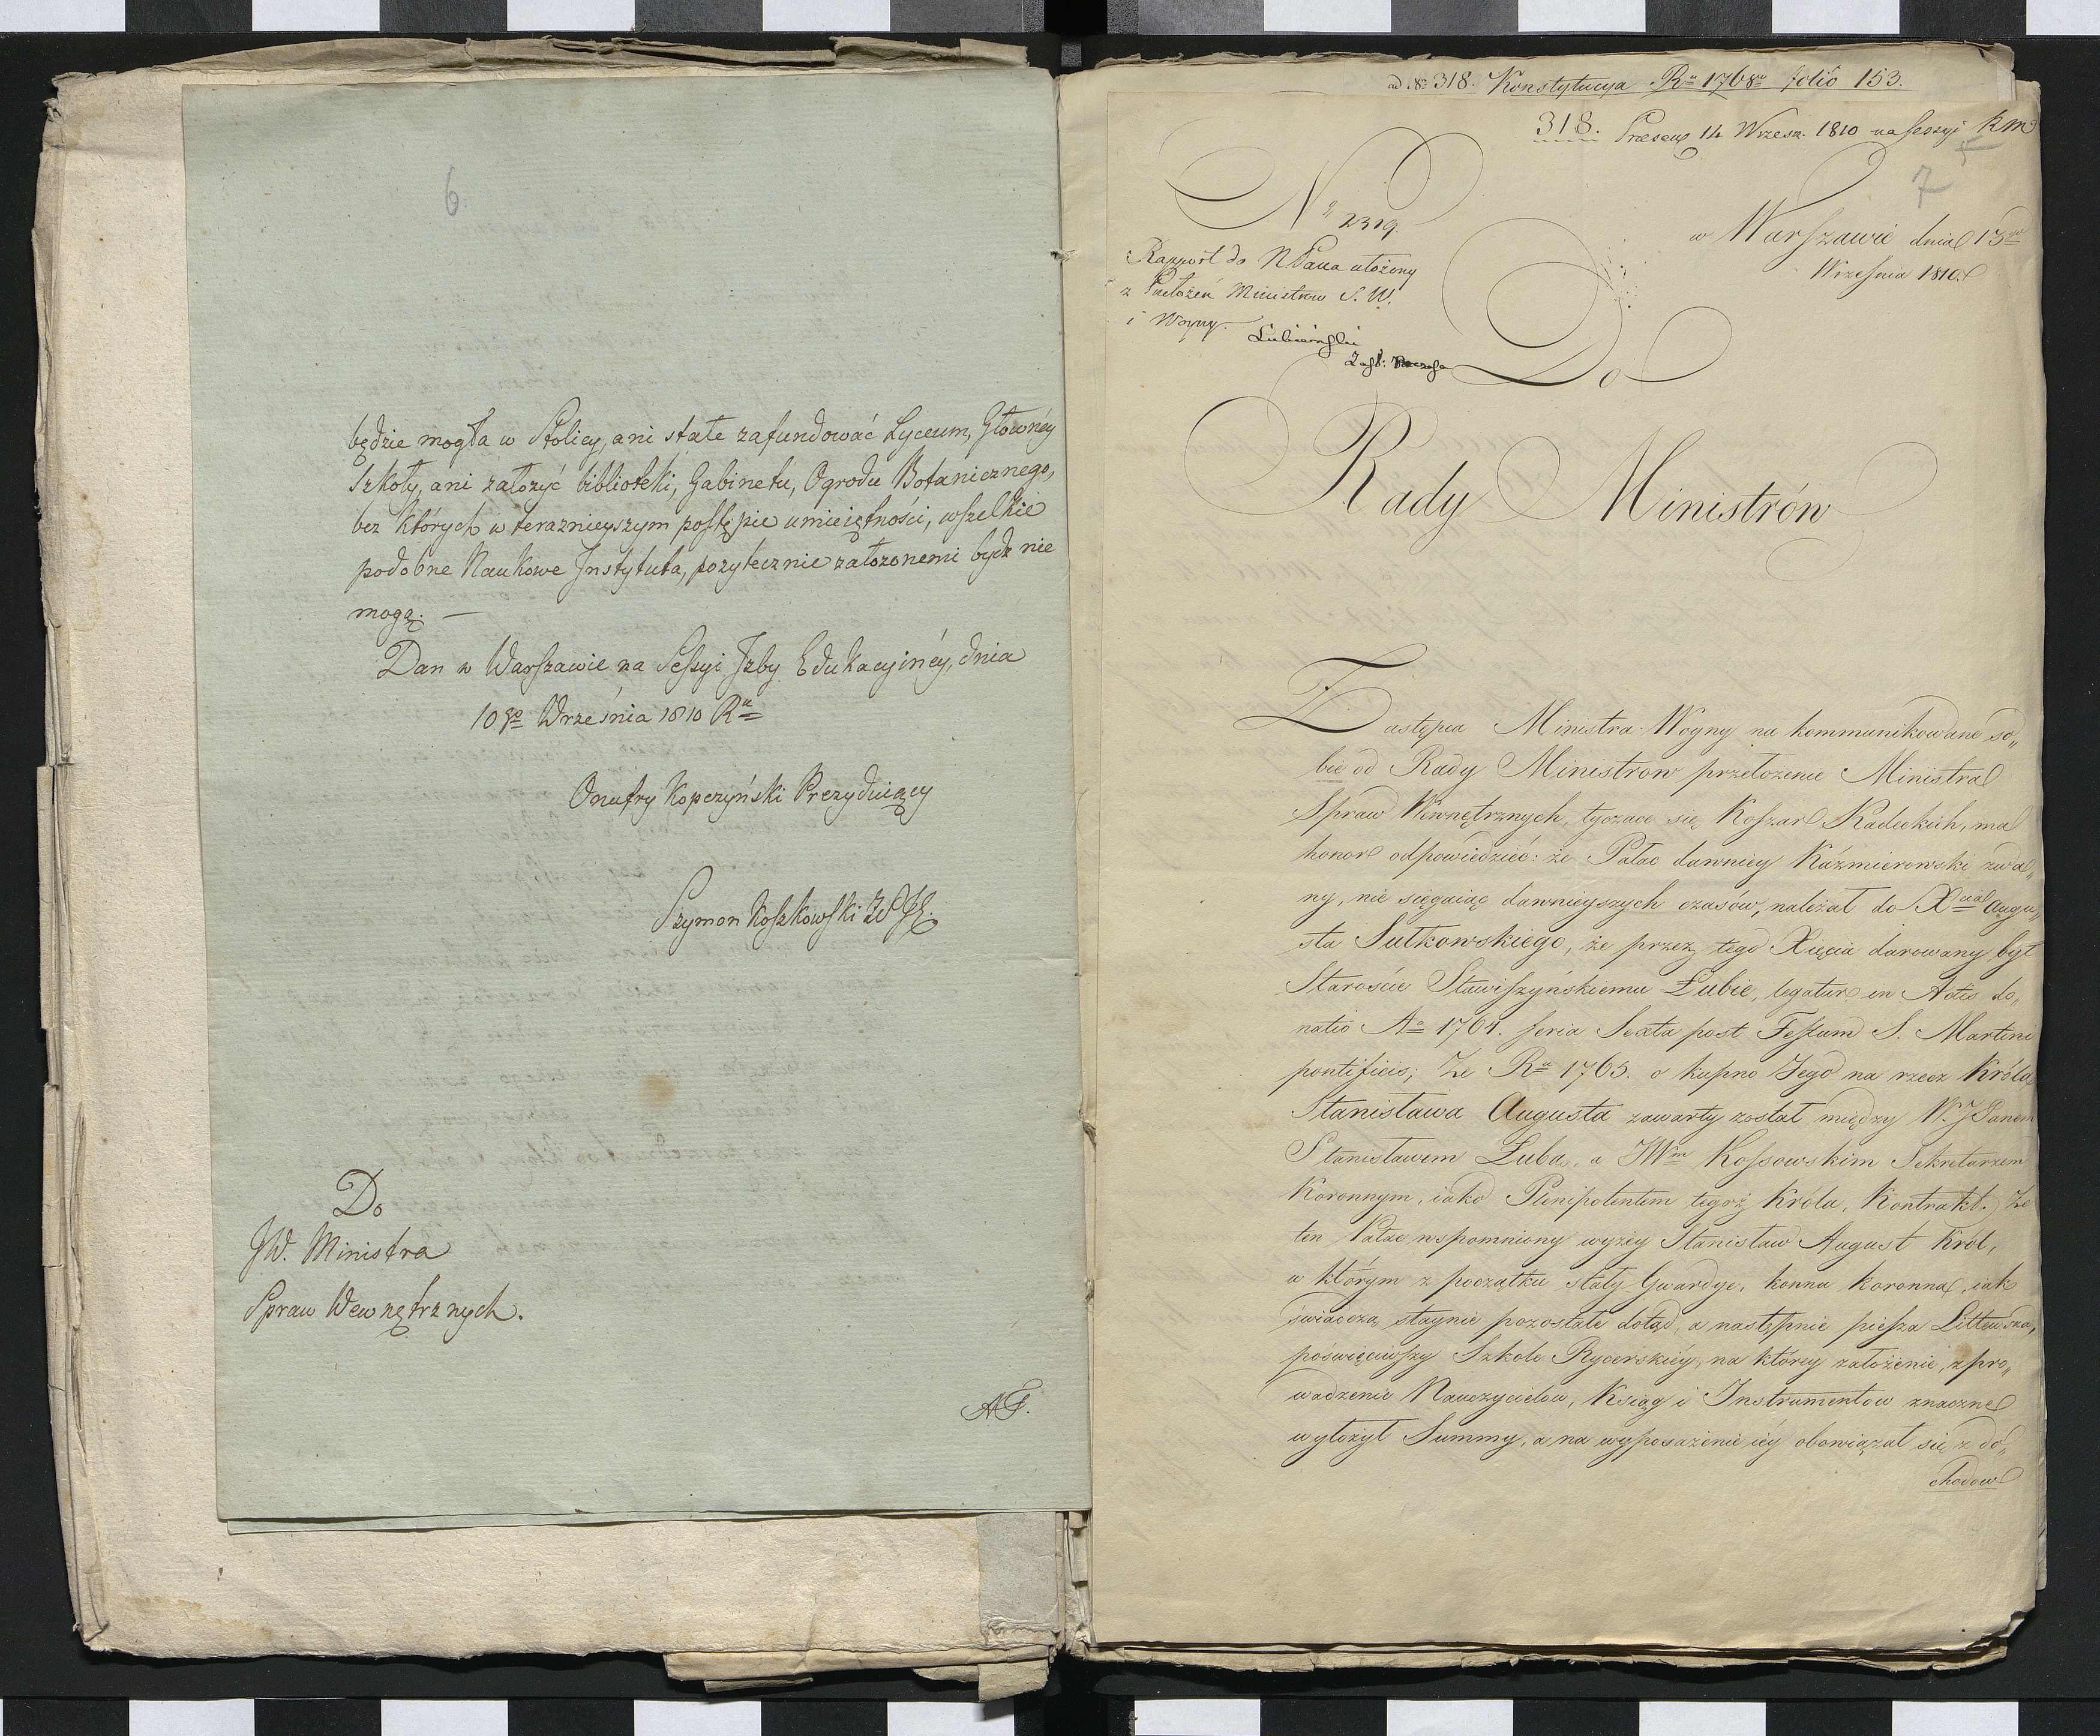 6
będzie mogła w Stolicy, ani stale zafundować Lyceum, Głównéy
Szkoły, ani założyć biblioteki, Gabinetu, Ogrodu Botanicznego,
bez których w teraznieyszym postępie umieiętności, wszelkie
podobne Naukowe Instytuta, pozytecznie założonemi bydz nie
mogą. —
Dan w Warszawie na Sessyi Izby Edukacyinéy, dnia
10go Września 1810 Ru
Onufry Kopczyński Prezyduiący
Szymon Koszkowski
Do
JW. Ministra
Spraw Wewnętrznych.
ad No 318. Konstytucya Ru 1768 folio 153.
318. Praesent 14 Wrzesn. 1810 na sessyi
7
No 2319.
w Warszawie dnia 13go
Września 1810.
Rapport do NPana ułożony
z Przełożeń Ministrów S. W.
i Woyny.
Łubieński
Do
Rady Ministrów
Zastępca Ministra Woyny na kommunikowane so„
bie od Rady Ministrow przełożenie Ministra
Spraw Wewnętrznych, tyczące się Koszar Kadeckich, ma
honor odpowiedzieć: że Pałac dawniey Kaźmierowski zwa„
ny, nie sięgaiąc dawnieyszych czasów, należał do Xcia Augu„
sta Sułkowskiego, że przez tego Xięcia darowany był
Staroście Stawiszyńskiemu Łubie, legatur in Actis do„
natio Ao 1764. feria Sexta post Festum S. Martini
pontificis; Że Ru 1765. o kupno Jego na rzecz Króla
Stanisława Augusta zawarty został między W. J Panem
Stanisławem Łuba, a JWm Kossowskim Sekretarzem
Koronnym, iako Plenipotentem tegoż Króla, Kontrakt. Że
ten Pałac wspomniony wyżey Stanisław August Król,
w którym z początku stały Gwardye, konna koronna, iak
świadczą staynie pozostałe dotąd, a następnie piesza Littewska,
poświęciwszy Szkole Rycerskiéy, na którey założenie, zpro„
wadzenie Nauczycielow, Ksiąg i Instrumentow znaczne
wyłożył Summy, a na wyposażenie iéy obowiązał się z do„
chodow